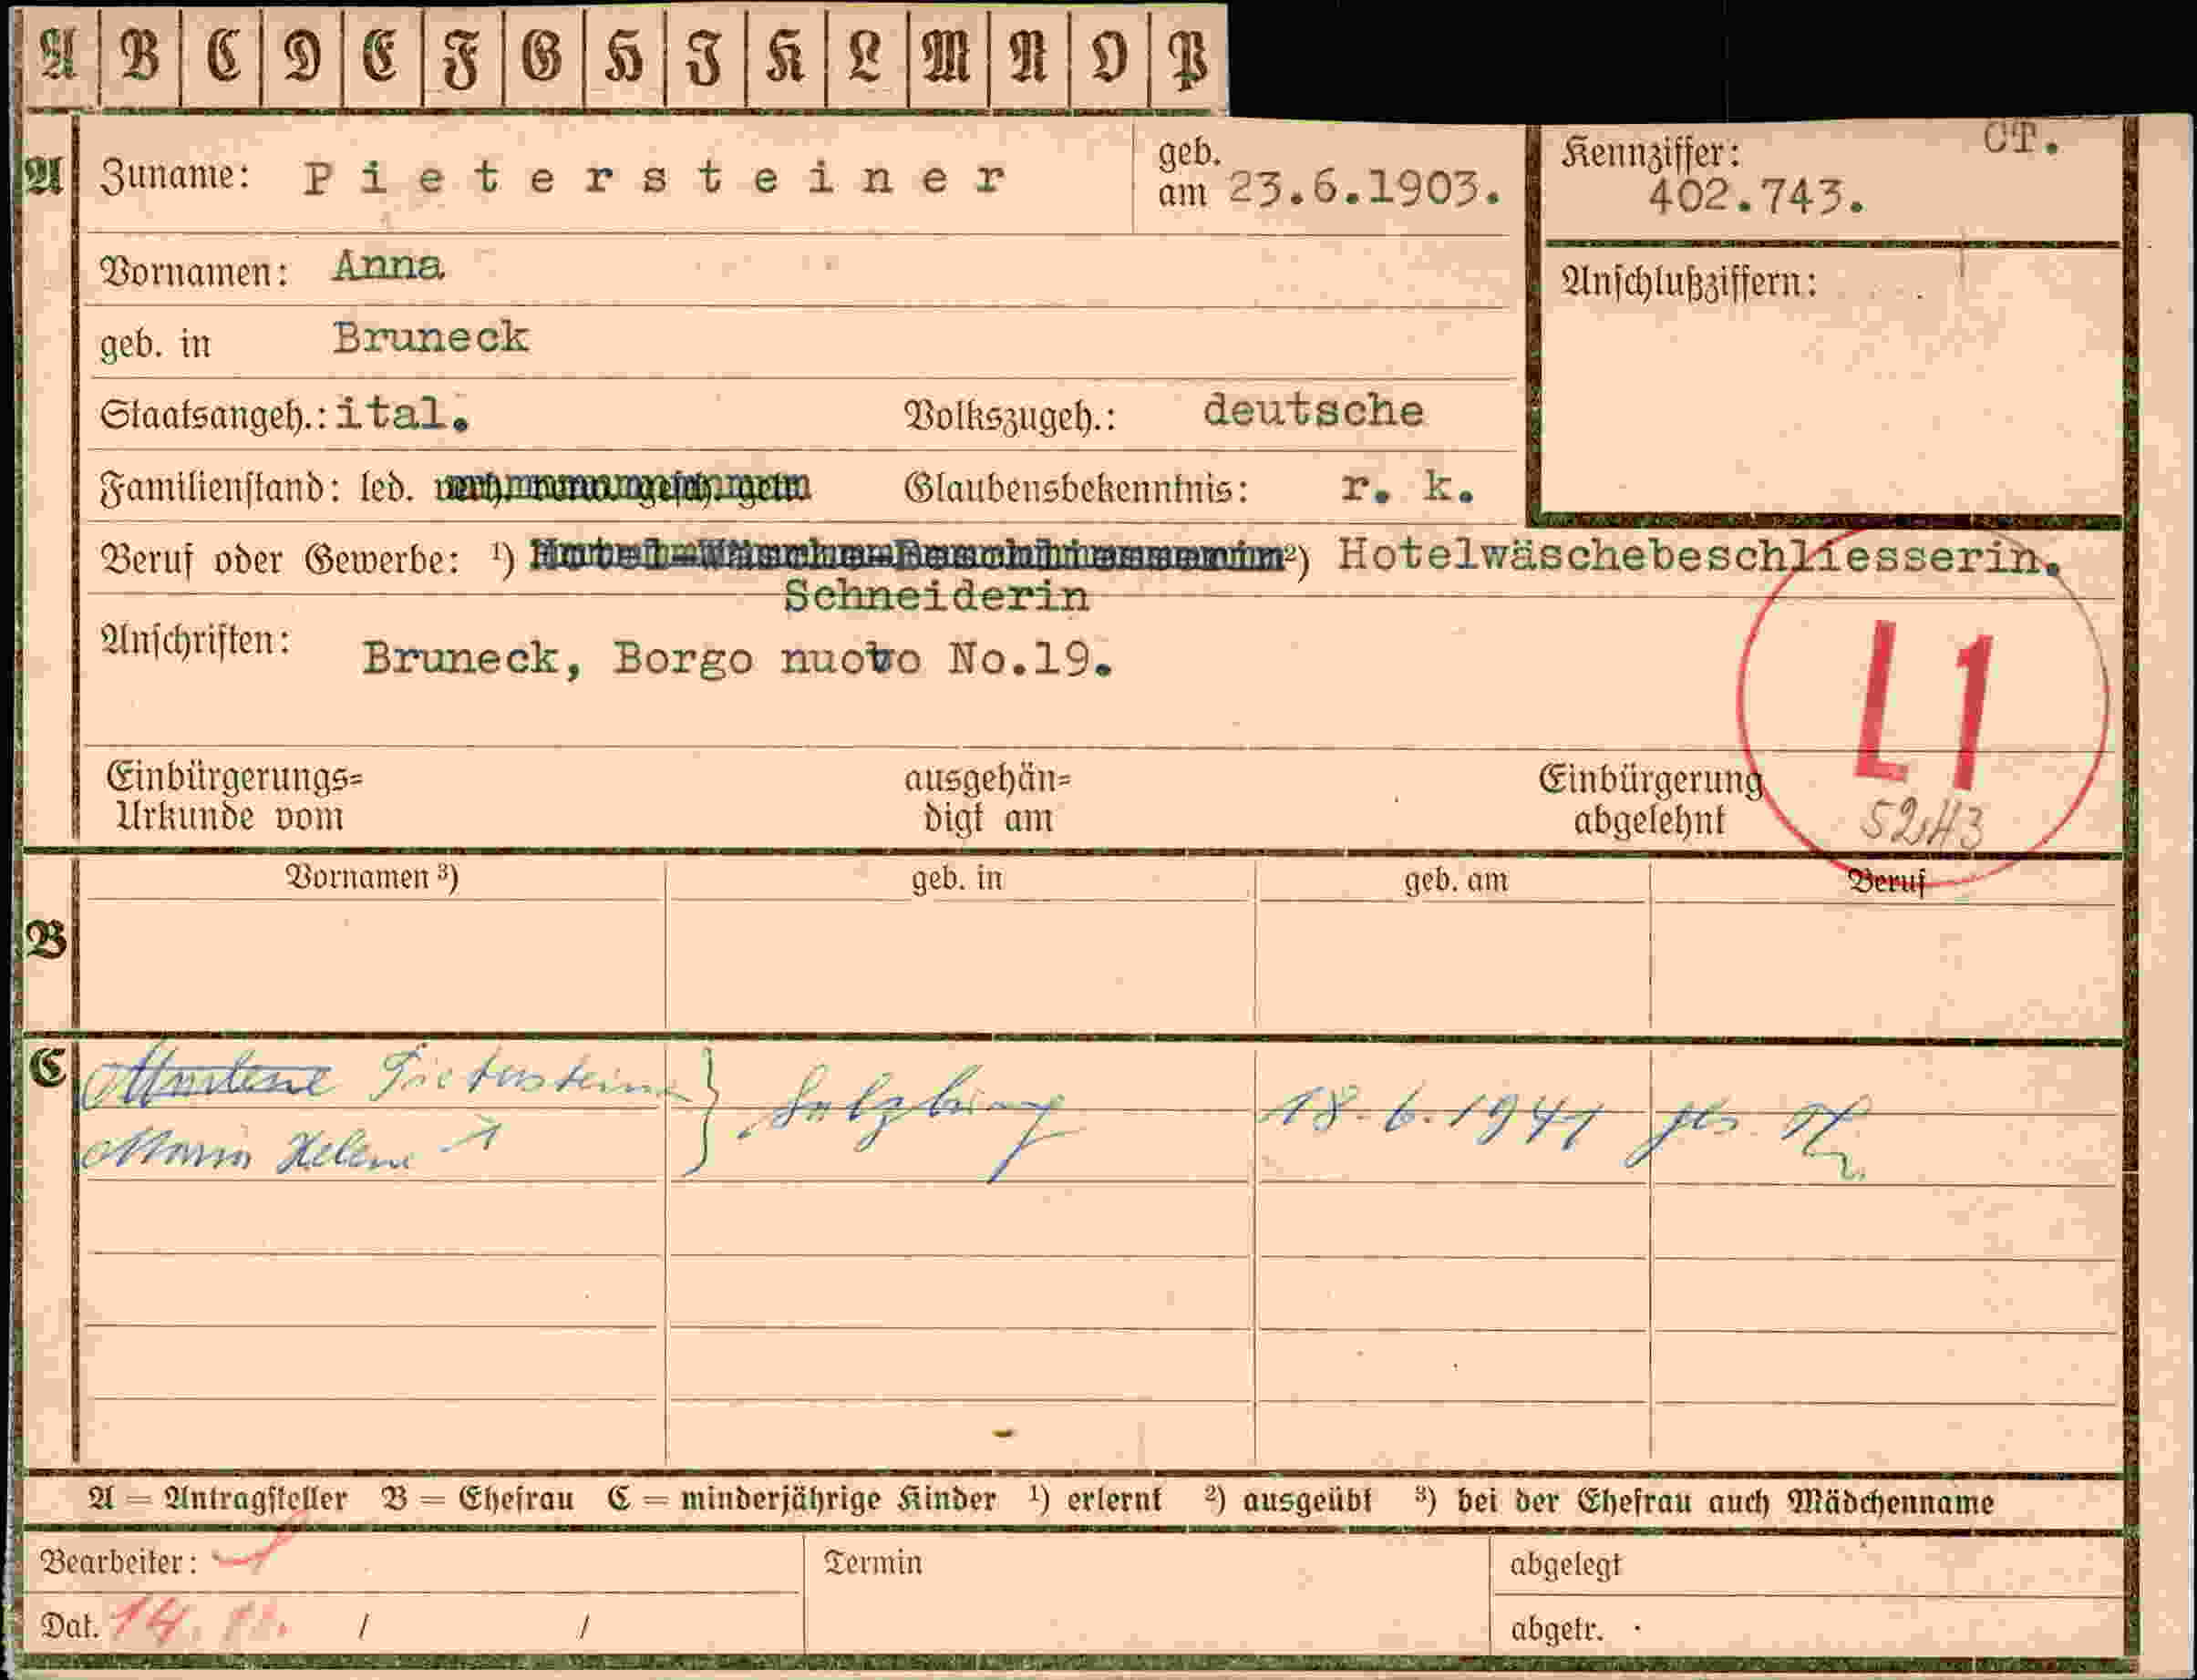 A B C D E F G H I K L M N O P
A Zuname: Pietersteiner geb. am 23.6.1903. Kennziffer: 402.743. CT.
Vornamen: Anna Anschlußziffern:
geb. in Bruneck
Staatsangeh.: ital. Volkszugeh.: deutsche
Familienstand: led. Glaubensbekenntnis: r. k.
Beruf oder Gewerbe: ¹) Hotel-Wäsche-Beschliesserin ²) Hotelwäschebeschliesserin.
Schneiderin
Anschriften: Bruneck, Borgo nuovo No.19.
L1
Einbürgerungs= ausgehän= Einbürgerung
Urkunde vom digt am abgelehnt 52,43
Vornamen ³) geb. in geb. am Beruf
B
C Marlene Pietersteiner } Salzburg 18.6.1941
Maria Helene
A = Antragsteller B = Ehefrau C = minderjährige Kinder ¹) erlernt ²) ausgeübt ³) bei der Ehefrau auch Mädchenname
Bearbeiter: Termin abgelegt
Dat. 14. / / abgetr.